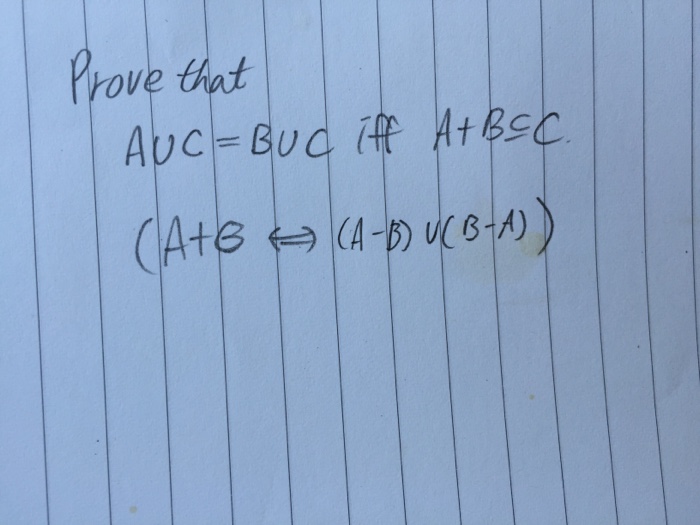 Prove that
A∪C = B∪C iff A+B⊆C.
(A+B ⟺ (A-B) ∪ (B-A))